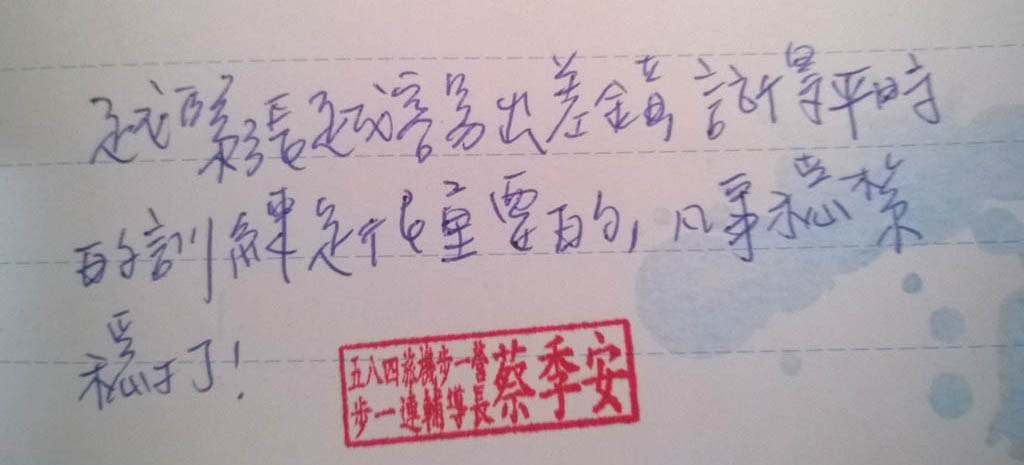 越緊張越容易出差錯,平時
的訓練是很重要的,凡事穩紮
穩打!
五八四旅機步一營
步一連輔導長
蔡季安